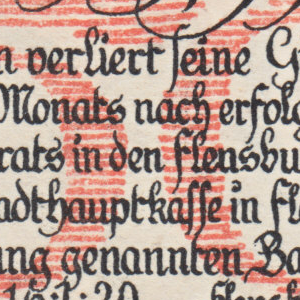 n verliert seine G
Monats nach erfol
rats in den Flensbu
adthauptkasse in Fl
ung genannten Ba